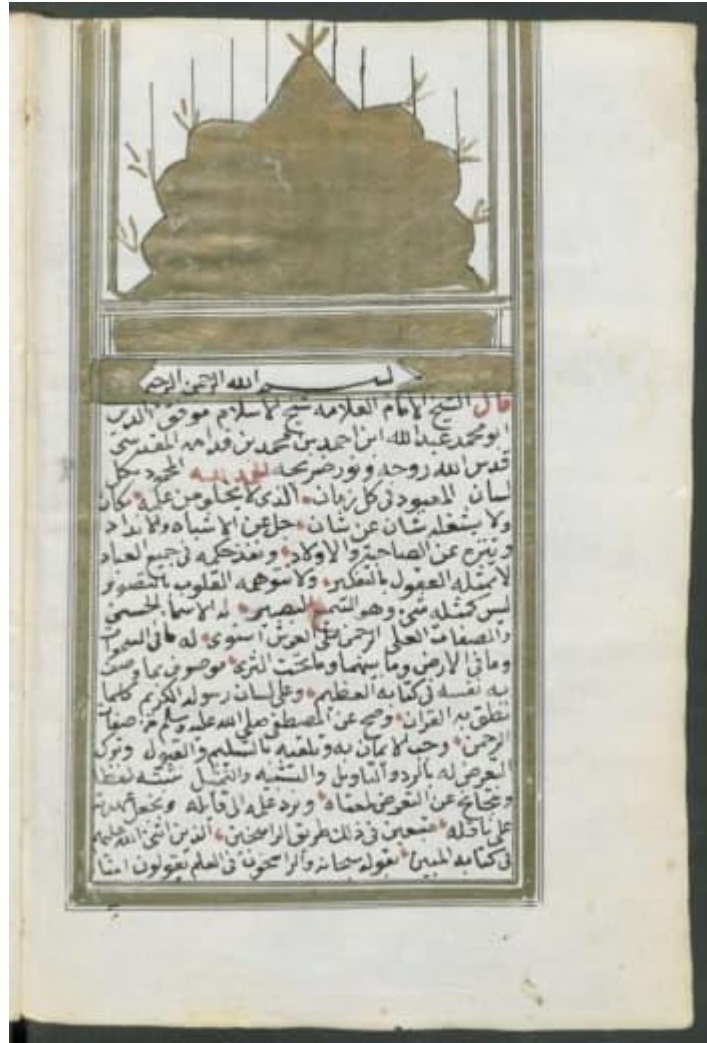 بسم الله الرحمن الرحيم
قال الشيخ الامام العلامه شيخ الاسلام موفق الدين
ابو محمد عبد الله ابن احمد بن محمد بن قدامه المقدسي
قدس الله روحه ونور ضريحه الحمد لله المحمود بكل
لسان المعبود في كل زمان الذي لا يخلو من علمه مكان
ولا يشغله شان عن شان جل عن الاشباه والانداد
وتنزه عن الصاحبة والاولاد ونفذ حكمه في جميع العباد
لا تمثله العقول بالتفكير ولا تتوهمه القلوب بالتصوير
ليس كمثله شي وهو السميع البصير له الاسما الحسنى
والصفات العلى الرحمن على العرش استوى له ما في السموات
وما في الارض وما بينهما وما تحت الثرى موصوف بما وصف
به نفسه في كتابه العظيم وعلى لسان رسوله الكريم كلما
نطق به القران وصح عن المصطفى صلى الله عليه وسلم من صفات
الرحمن وجب الايمان به وتلقيه بالتسليم والقبول وترك
التعرض له بالرد والتاويل والتشبيه والتمثيل نثبته لفظا
عن التعرض لمعناه ونرد علمه الى قايله ونجعل عهدته
على ناقله متبعين في ذلك طريق الراسخين الذين اثنى الله عليهم
في كتابه المبين بقوله سبحانه والراسخون في العلم يقولون امنا